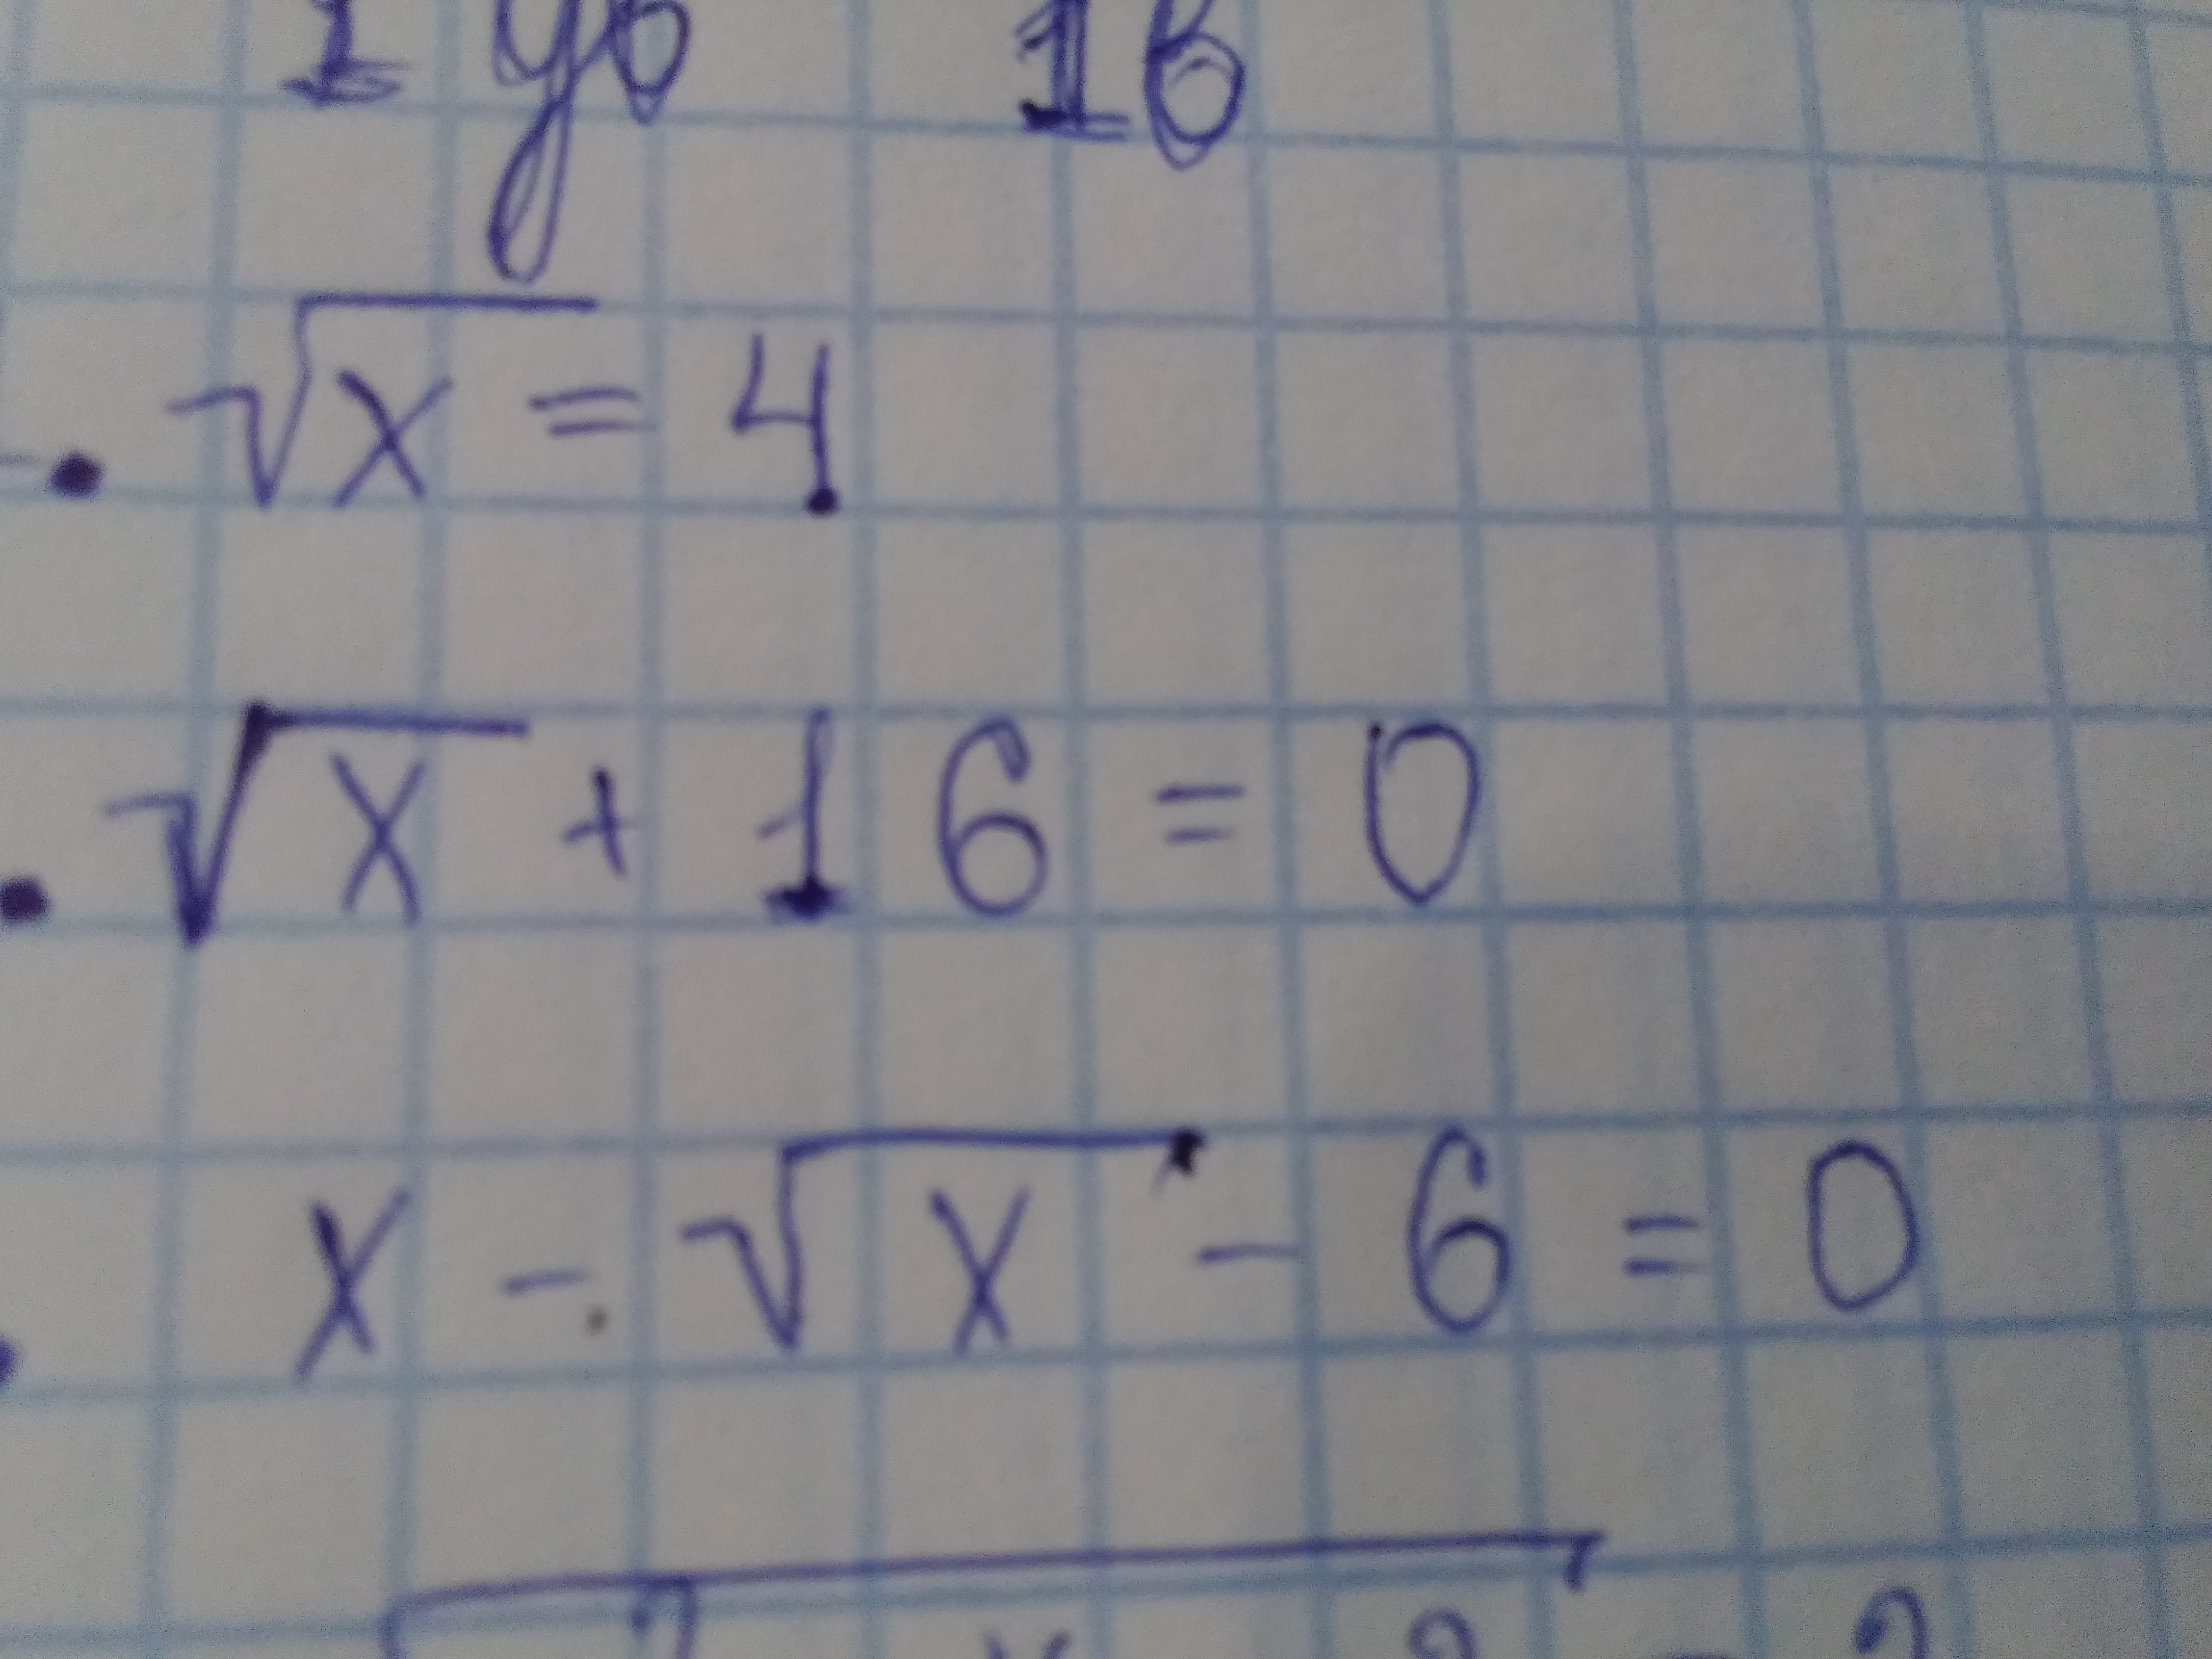 1 ув 1в
. √x = 4
. √x + 16 = 0
. x - √x - 6 = 0